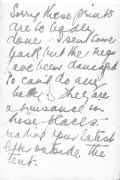 Sorry these prints
are so badly
done - I sent some
back but the negs
have been damaged
so can't do any
better. They are
a nuisance in
these places.
reading your latest
letter outside the
tent.